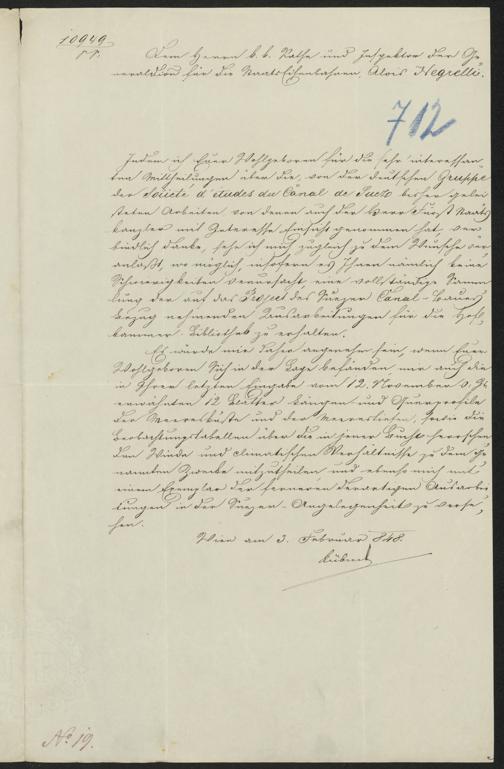 10949
p.p.
Dem Herrn k. k. Rathe und Inspektor der Ge-
neraldion für die Staatseisenbahnen, Alois Negrelli.
712
Indem ich Euer Wohlgeboren für die sehr interessan-
ten Mittheilungen über die, von der deutschen Gruppe
der Société d'études du Canal de Suez bisher gelei-
steten Arbeiten, von denen auch der Herr Fürst Staats-
kanzler mit Interesse Einsicht genommen hat, ver-
bindlich danke, sehe ich mich zugleich zu dem Wunsche ver-
anlaßt, wo möglich, insofern es Ihnen nämlich keine
Schwierigkeiten verursacht, eine vollständige Samm-
lung der auf das Project des Suezer Canal-Baues
Bezug nehmenden Ausarbeitungen für die Hof-
kammer-Bibliothek zu erhalten.
Es würde mir daher angenehm sein, wenn Euer
Wohlgeboren Sich in der Lage befänden, mir auch die
in Ihrer letzten Eingabe vom 12. November v. J.
erwähnten 12 Blätter Längen und Querprofile
der Meeresküste und der Meerestiefen, sowie die
Beobachtungstabellen über die in jener Bucht herrschen-
den Winde und climatischen Verhältnisse zu dem ge-
nannten Zwecke mitzutheilen und ebenso mich mit
einem Exemplar der ferneren derartigen Ausarbei-
tungen in der Suezer-Angelegenheit zu verse-
hen.
Wien am 3. Februar 848.
Kübeck
No. 19.